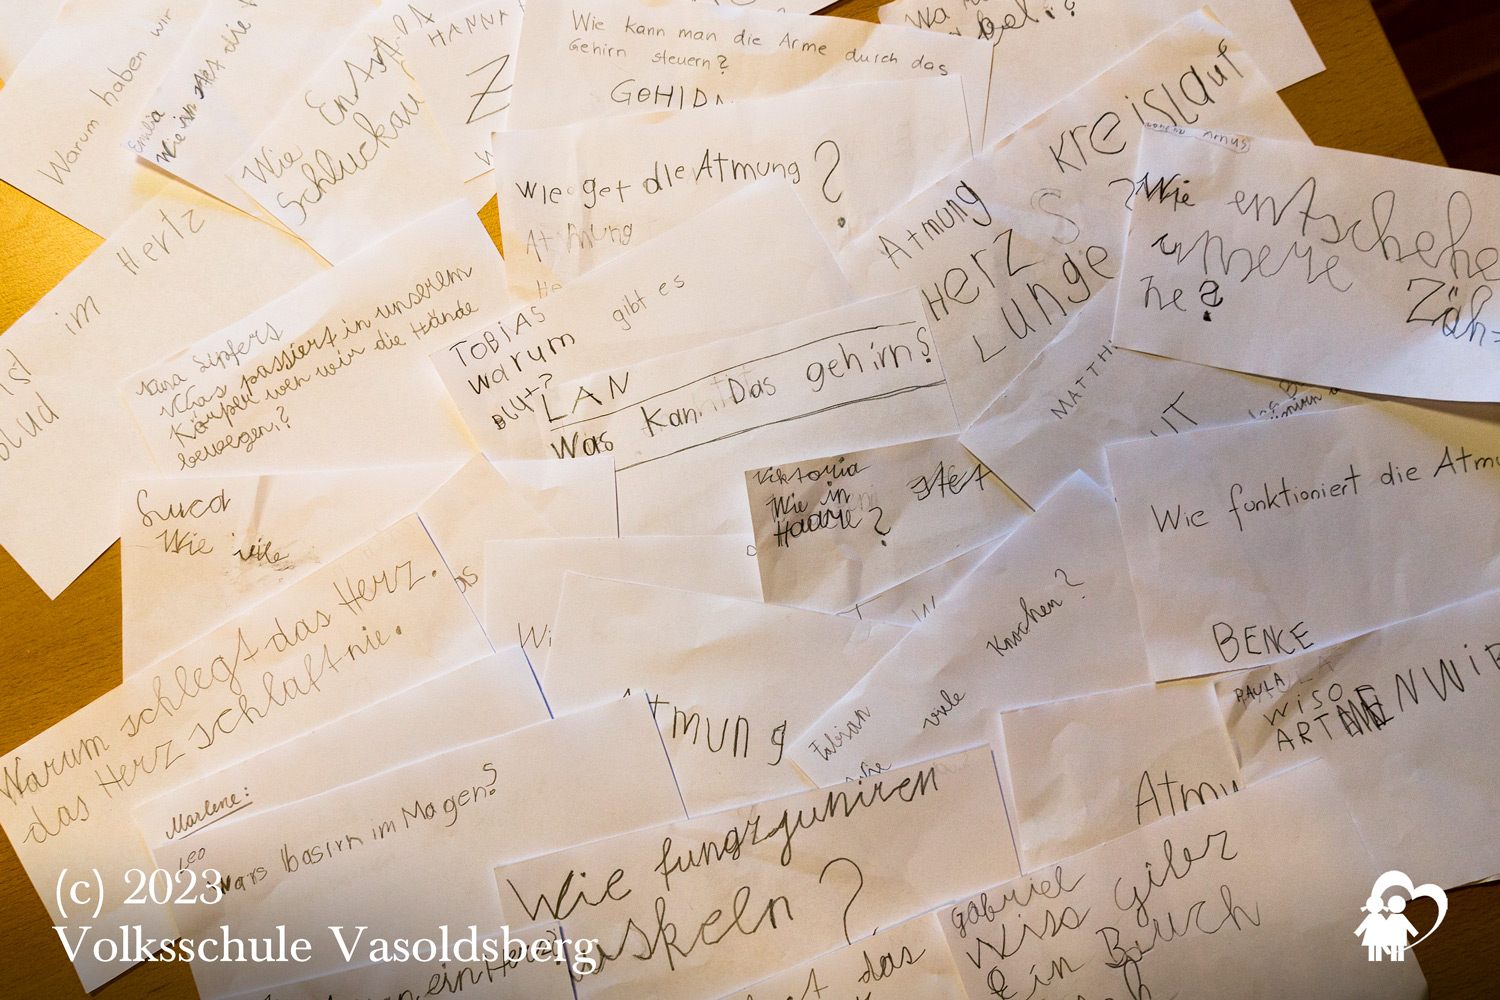 Warum haben wir
Emilia
Wie
die
Wie Entst
Schluckau
HANNA
Z
Wie kann man die Arme durch das
Gehirn steuern?
GEHIRN
Wie get die Atmung ?
Atmung
He
Kreislauf
Atmung
HERZ
S
Lunge
Wie entschehe
unsere Zäh-
ne?
ist im Hertz
blud
Was passiert in unserem
Körper wen wir die Hände
bewegen,?
TOBIAS
warum gibt es
BLUT?
LAN
Was kann Das gehirn?
MATTH
UT
Luca
Wie viele
Viktoria
Wie in
Haare ?
Wie funktioniert die Atmu
BENCE
Warum schlegt das Herz.
das Herz schläft nie.
as
Wi
Atmung
Knochen?
Fabian
viele
PAULA
WISO
ARTMEN WIR
Atmu
Marlene:
Leo
Wars basirn im Magen?
Wie fungzuniren
uskeln ?
Gabriel
Wiso giler
ein Bauch
ein Herz?
das
(c) 2023
Volksschule Vasoldsberg